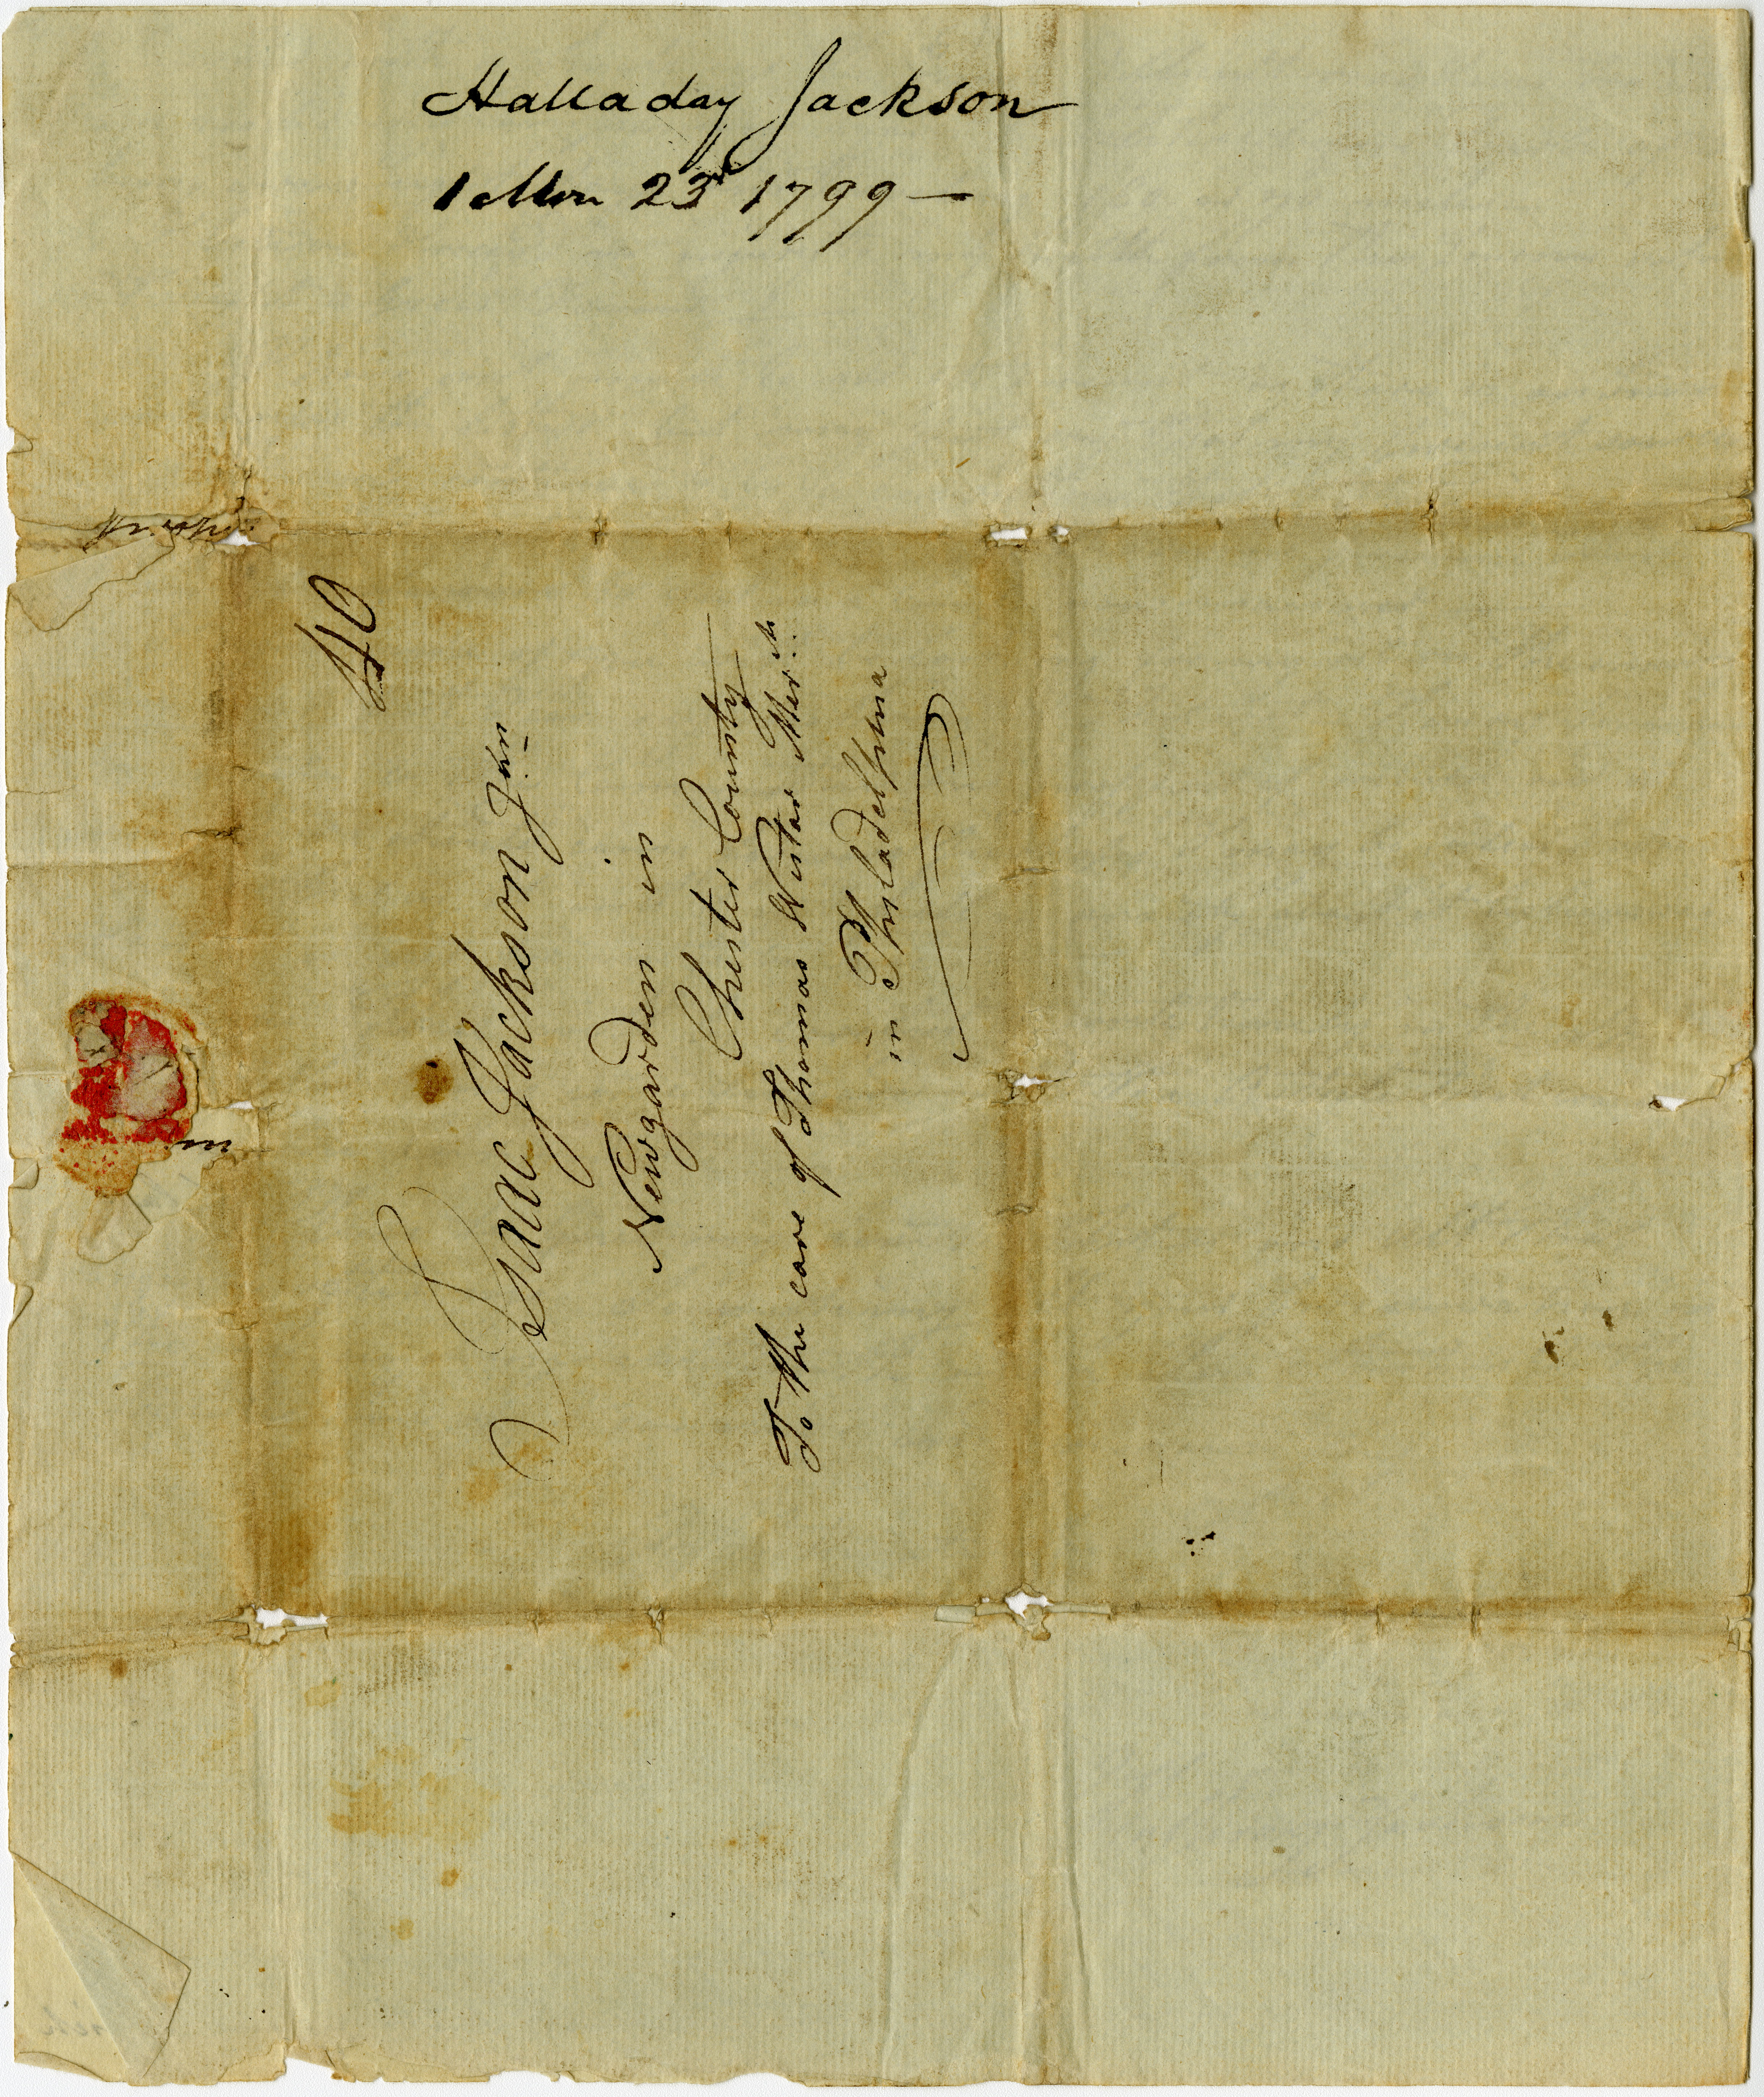 Halladay Jackson
1 Mon 23d 1799 —
40
Isaac Jackson Jun
Newgarden in
Chester County
To the care of Thomas Wistar Mercht
in Philadelphia